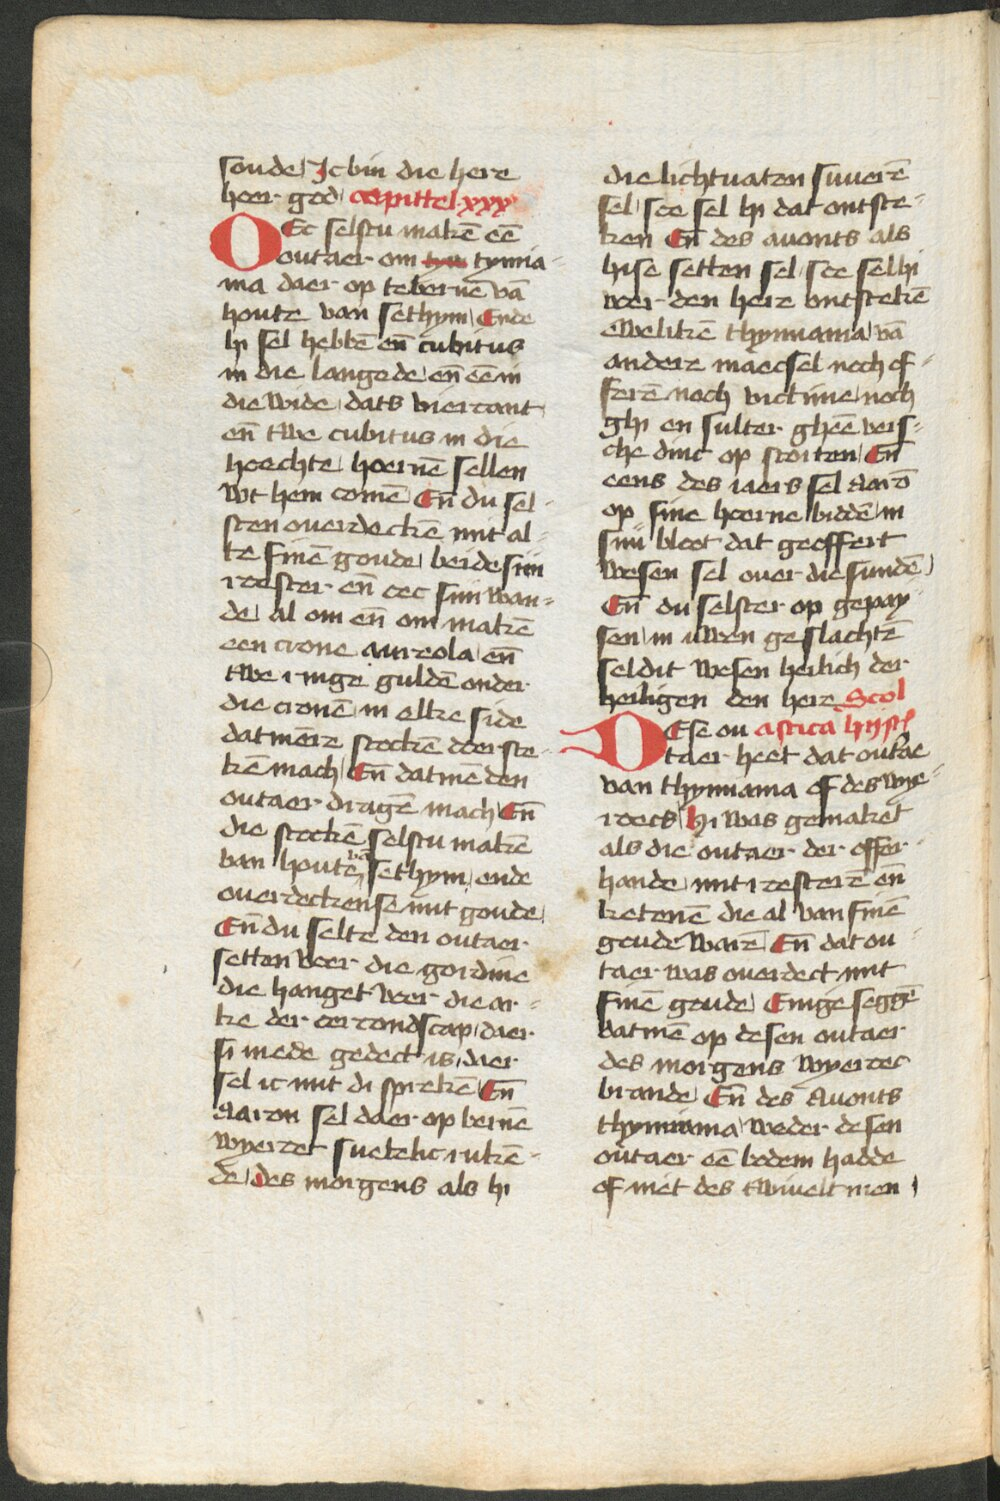 soude Ic bin die here
heer god capittel xxx
OEc selstu makē eē
outaer om tym tymia-
ma daer op te bernē vā
houte van sethym Ende
hi sel hebbē eñ cubitus
in die langede eñ eē in
die wide dats viercant
eñ twe cubitus in die
hoechte hoernē sellen
wt hem comē Eñ du sel-
sten ouerdeckē mit al-
te finē goude beide sijn
roester eñ oec sijn wan-
de al om eñ om makē
een crone aureola eñ
twe ringe guldē onder
die cronē in elke side
datmēre stockē doer ste-
kē mach Eñ datmē den
outaer dragē mach Eñ
die stockē selstu makē
van houte vā sethym ende
ouerdeckense mit goude
Eñ du selte den outaer
setten voer die gordine
die hanget voer die ar-
ke der orcondscap daer
si mede gedect is daer
sel ic mit di sprekē Eñ
Aaron sel daer op bernē
wyeroec suetelic rukē-
de des morgens als hi
die lichtuaten suuerē
sel soe sel hi dat ontste-
ken Eñ des auonts als
hise setten sel soe sel hi
voer den here ontstekē
Ewelikē thymiama vā
andere maecsel noch of-
ferē noch victime noch
ghi en sulter gheē vers-
che dinc op storten Eñ
eens des iaers sel Aarō
op sine hoerne biddē in
sijn bloet dat geoffert
wesen sel ouer die sundē
Eñ du selster op gepay-
sen in uwen geslachtē
sel dit wesen heilich der
heiligen den here Scol
DEse ou astica hijstī
taer heet dat outae
van thymiama of des wye-
roecs Hi was gemaket
als die outaer der offer-
hande mit roesterē eñ
ketenē die al van finē
goude warē Eñ dat ou-
taer was ouerdect mit
finē goude Enige seggē
datmē op desen outaer
des morgens wyeroec
brande Eñ des Auonts
thymiama weder desen
outaer eē bodem hadde
of niet des twiuelt men